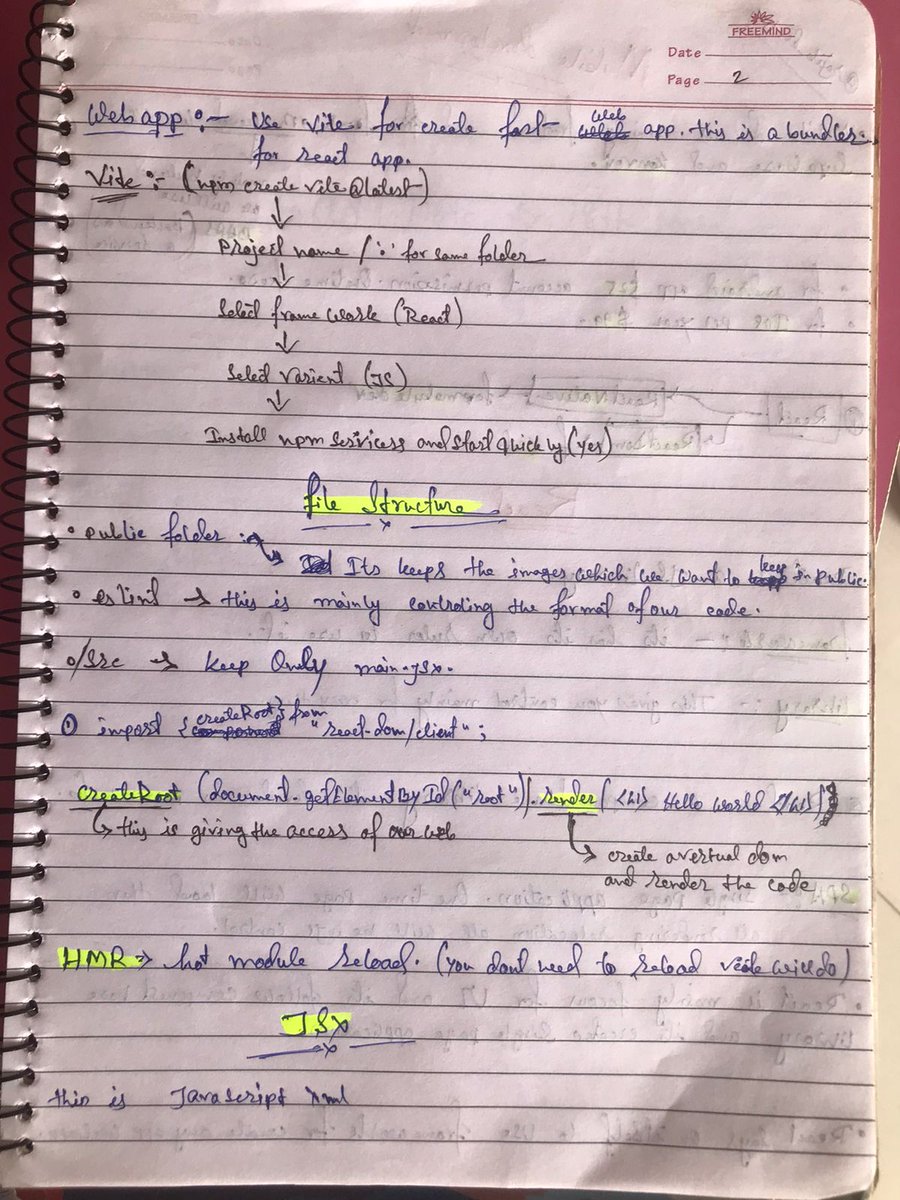 FREEMIND
Date
Page 2
Web app :- Use Vite for create fast web app. this is a bundler
for react app.
Vite :- (npm create vite@latest)
↓
Project name / '.' for same folder
↓
Select frame work (React)
↓
Select varient (JS)
↓
Install npm services and start quickly (yes)
file structure
• public folder :→
Its keeps the images which we want to keep in public.
• eslint → this is mainly controling the format of our code.
•/src → keep Only main.jsx.
① import {createRoot} from "react-dom/client";
createRoot (document.getElementById("root")).render(<h1> Hello world </h1>)
↳ this is giving the access of our web
↳ create a vertual dom
and render the code
HMR → hot module reload. (you dont need to reload viete will do)
JSX
this is JavaScript xml